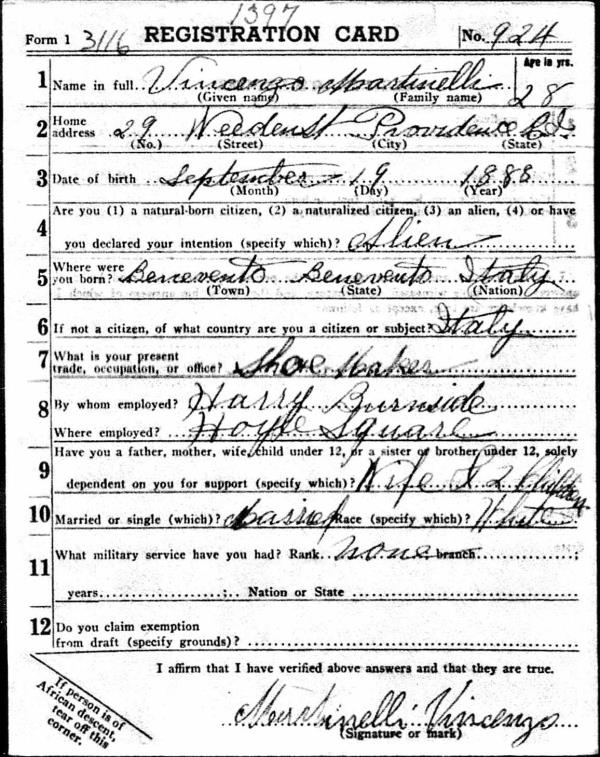 1397
Form 1 3116 REGISTRATION CARD No. 924
Age in yrs.
1 Name in full Vincenzo Martinelli 28
(Given name) (Family name)
2 Home address 29 Weeden St Providence R.I.
(No.) (Street) (City) (State)
3 Date of birth September 19 1888
(Month) (Day) (Year)
Are you (1) a natural-born citizen, (2) a naturalized citizen, (3) an alien, (4) or have
4 you declared your intention (specify which)? Alien
5 Where were you born? Benevento Benevento Italy
(Town) (State) (Nation)
6 If not a citizen, of what country are you a citizen or subject? Italy
7 What is your present
trade, occupation, or office? Shoe Maker
8 By whom employed? Harry Burnside
Where employed? Hoyle Square
Have you a father, mother, wife, child under 12, or a sister or brother under 12, solely
9 dependent on you for support (specify which)? Wife & 2 Children
10 Married or single (which)? Married Race (specify which)? White
11 What military service have you had? Rank none branch ;
years ; Nation or State
12 Do you claim exemption
from draft (specify grounds)?
I affirm that I have verified above answers and that they are true.
If person is of
African descent,
tear off this
corner.
Martinelli Vincenzo
(Signature or mark)